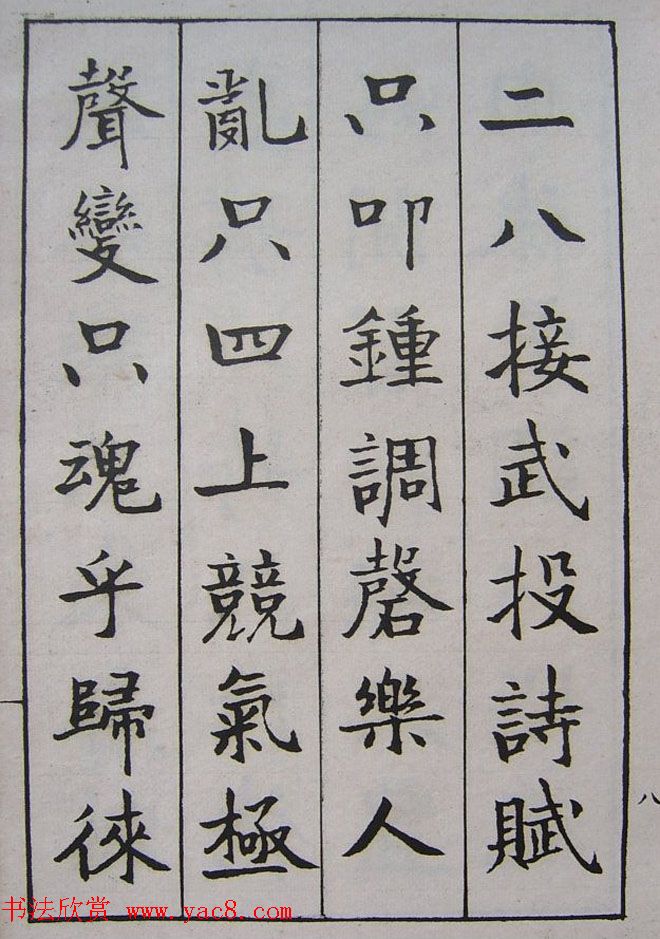 二八接武投詩賦
只叩鍾調磬樂人
亂只四上競氣極
聲變只魂乎歸徠
八
书法欣赏 www.yac8.com